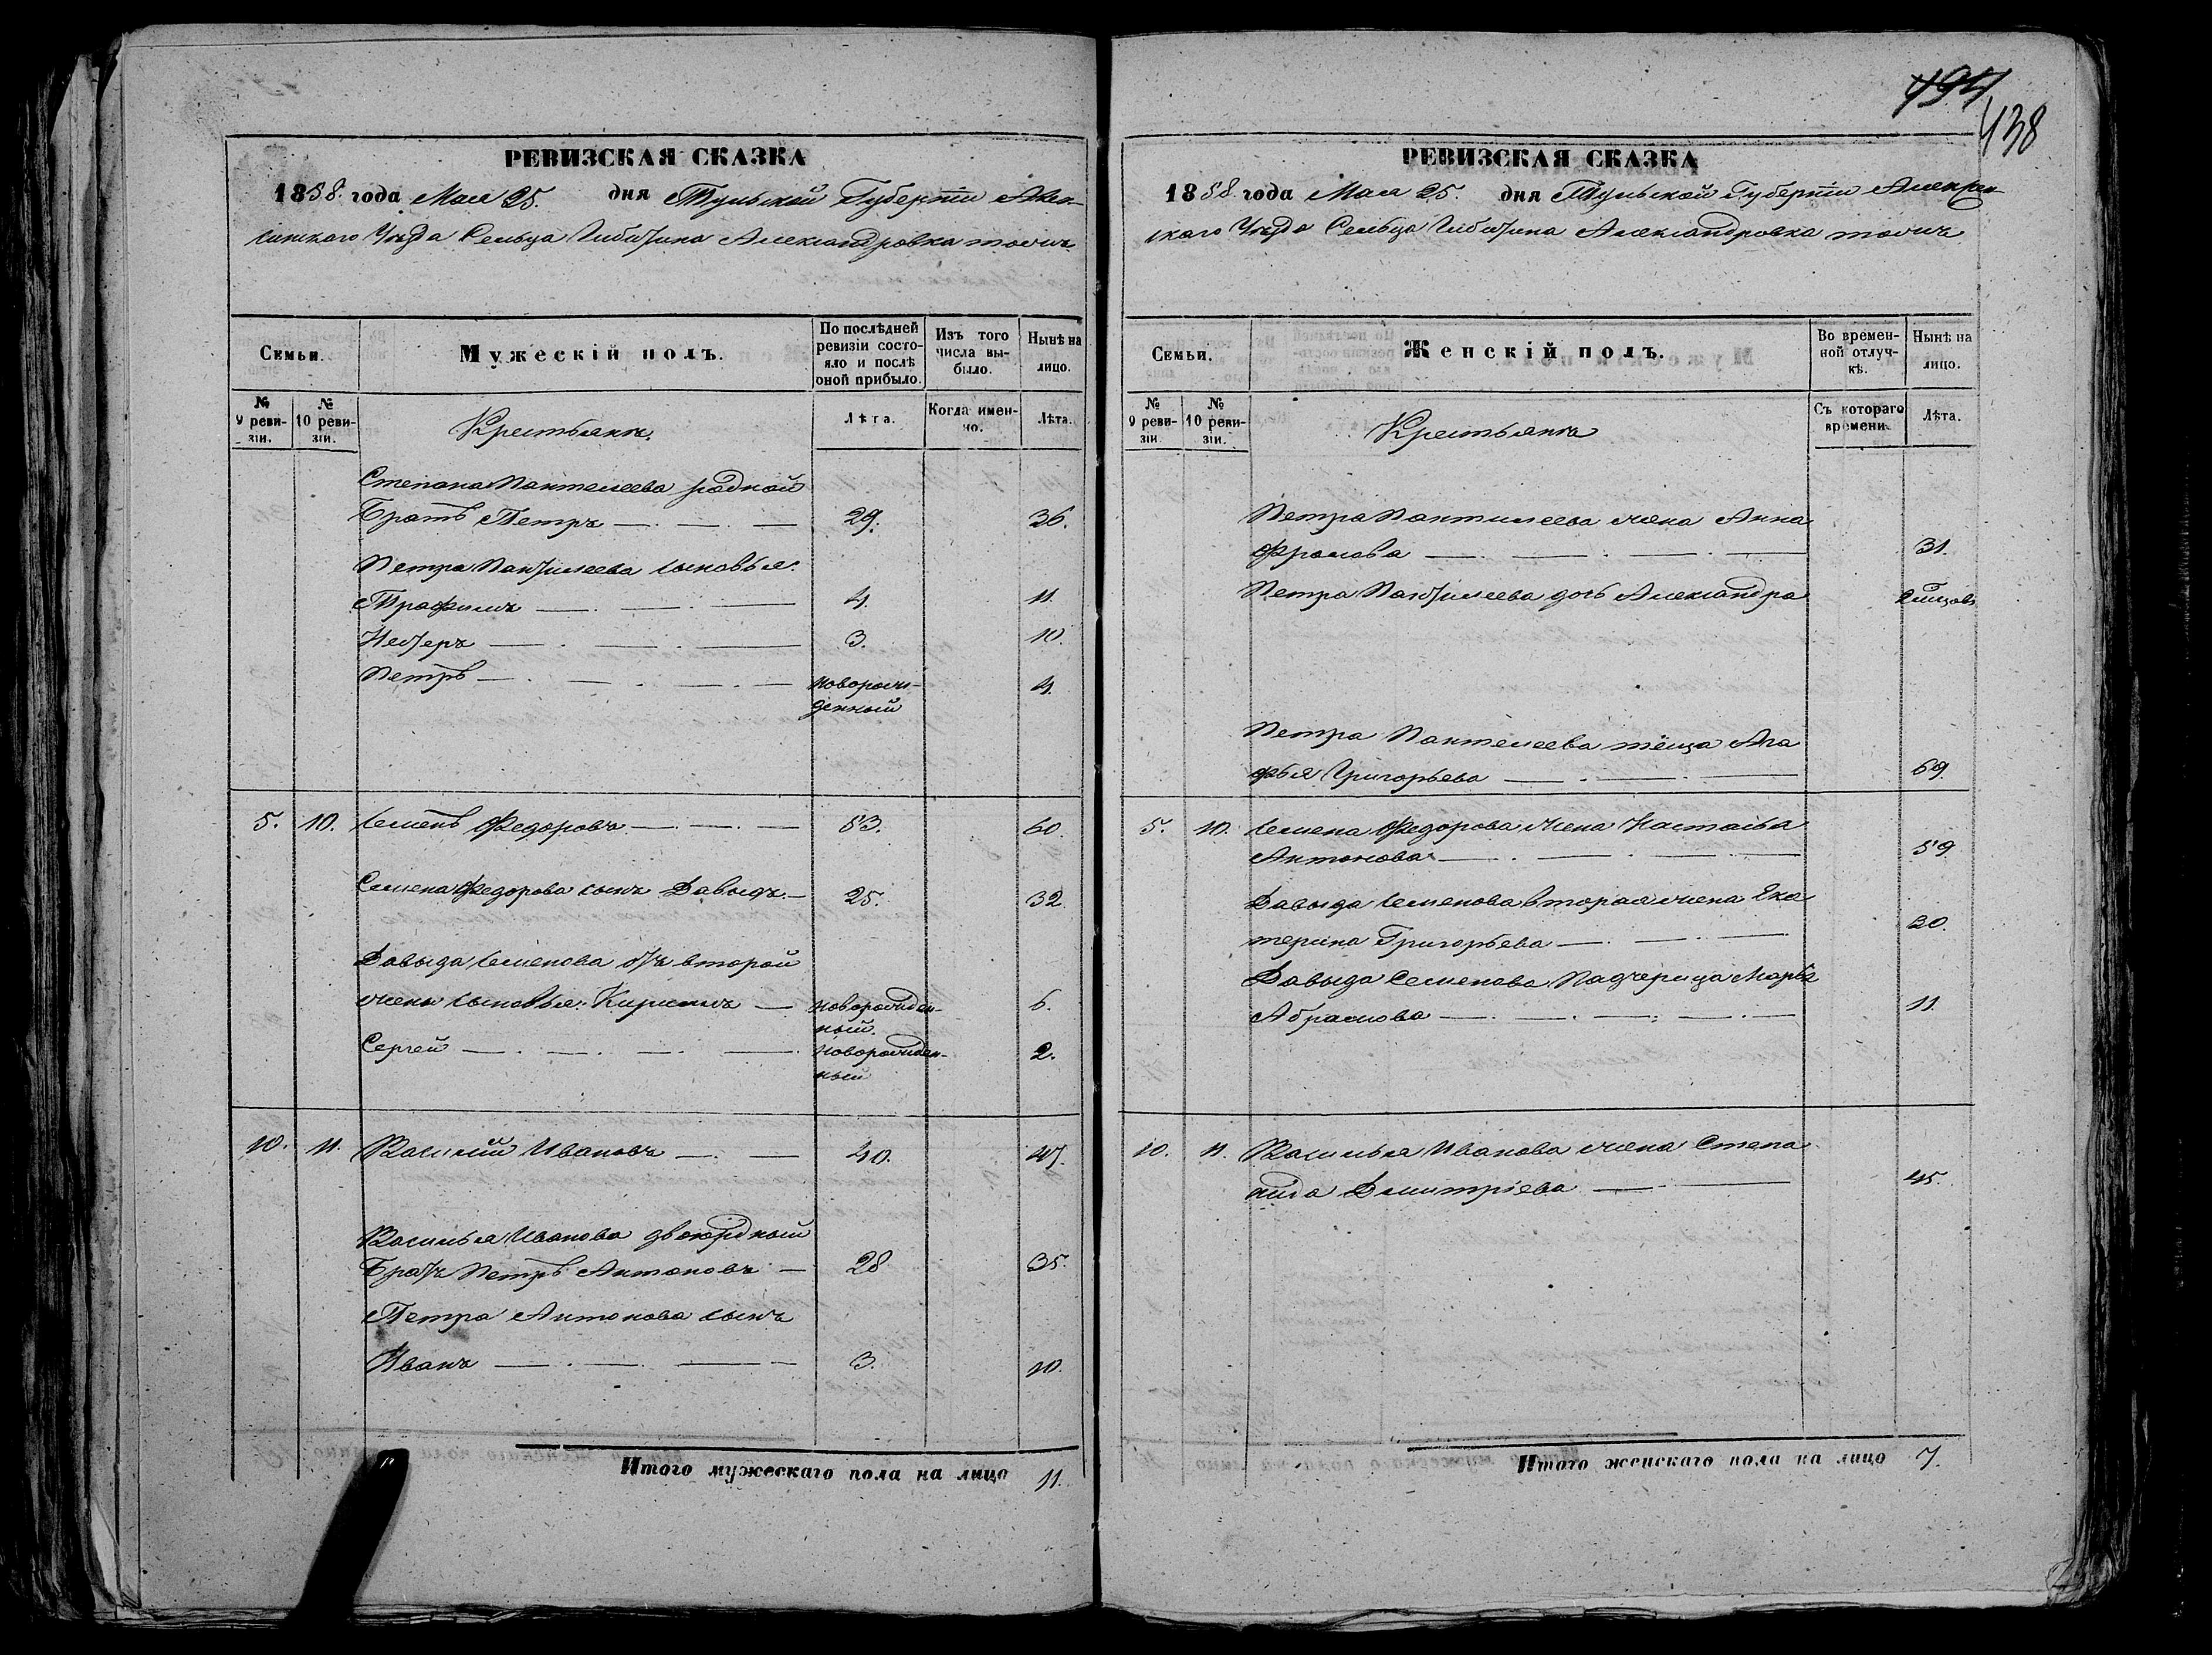 РЕВИЗСКАЯ СКАЗКА
1858. года Мая 25. дня Тульской Губерніи Алек-
синскаго Уѣзда Сельца Александровка тожъ
Семьи. Мужескій полъ. По послѣдней ревизіи состояло и послѣ оной прибыло. Изъ того числа выбыло. Нынѣ на лицо.
№ 9 ревизіи. № 10 ревизіи. Крестьянъ. Лѣта. Когда именно. Лѣта.
Степана Пантелеева родной
Братъ Петръ 29. 36.
Петра Пантилеева сыновья:
Трафимъ 4. 11.
Нестеръ 3. 10.
Петръ новорож- 4.
денный
5. 10. Семенъ Федоровъ 53. 60.
Семена Федорова сынъ Давыдъ 25. 32.
Давыда Семенова отъ второй
жены сыновья: Кирилъ новорожден- 6.
ный.
Сергей новорожден- 2.
ный
10. 11. Василій Ивановъ 40. 47.
Василья Иванова двоюрдный
Братъ Петръ Антоновъ 28 35.
Петра Антонова сынъ
Иванъ 3. 10.
Итого мужескаго пола на лицо 11.
494
438
РЕВИЗСКАЯ СКАЗКА
1858. года Мая 25. дня Тульской Губерніи Алексин-
скаго Уѣзда Сельца Александровка тожъ
Семьи. Женскій полъ. Во временной отлучкѣ. Нынѣ на лицо.
№ 9 ревизіи. № 10 ревизіи. Крестьянъ Съ котораго времени. Лѣта.
Петра Пантилеева жена Анна
Фролова 31.
Петра Пантилеева дочь Александра
Петра Пантелеева тёща Ага
фья Григорьева 69.
5. 10. Семена Федорова жена Настасья
Антонова 59.
Давыда Семенова вторая жена Ека
терина Григорьева 30.
Давыда Семенова Падчерица Марья
Абрамова 11.
10. 11. Василья Иванова жена Степа
нида Дмитріева 45.
Итого женскаго пола на лицо 7.